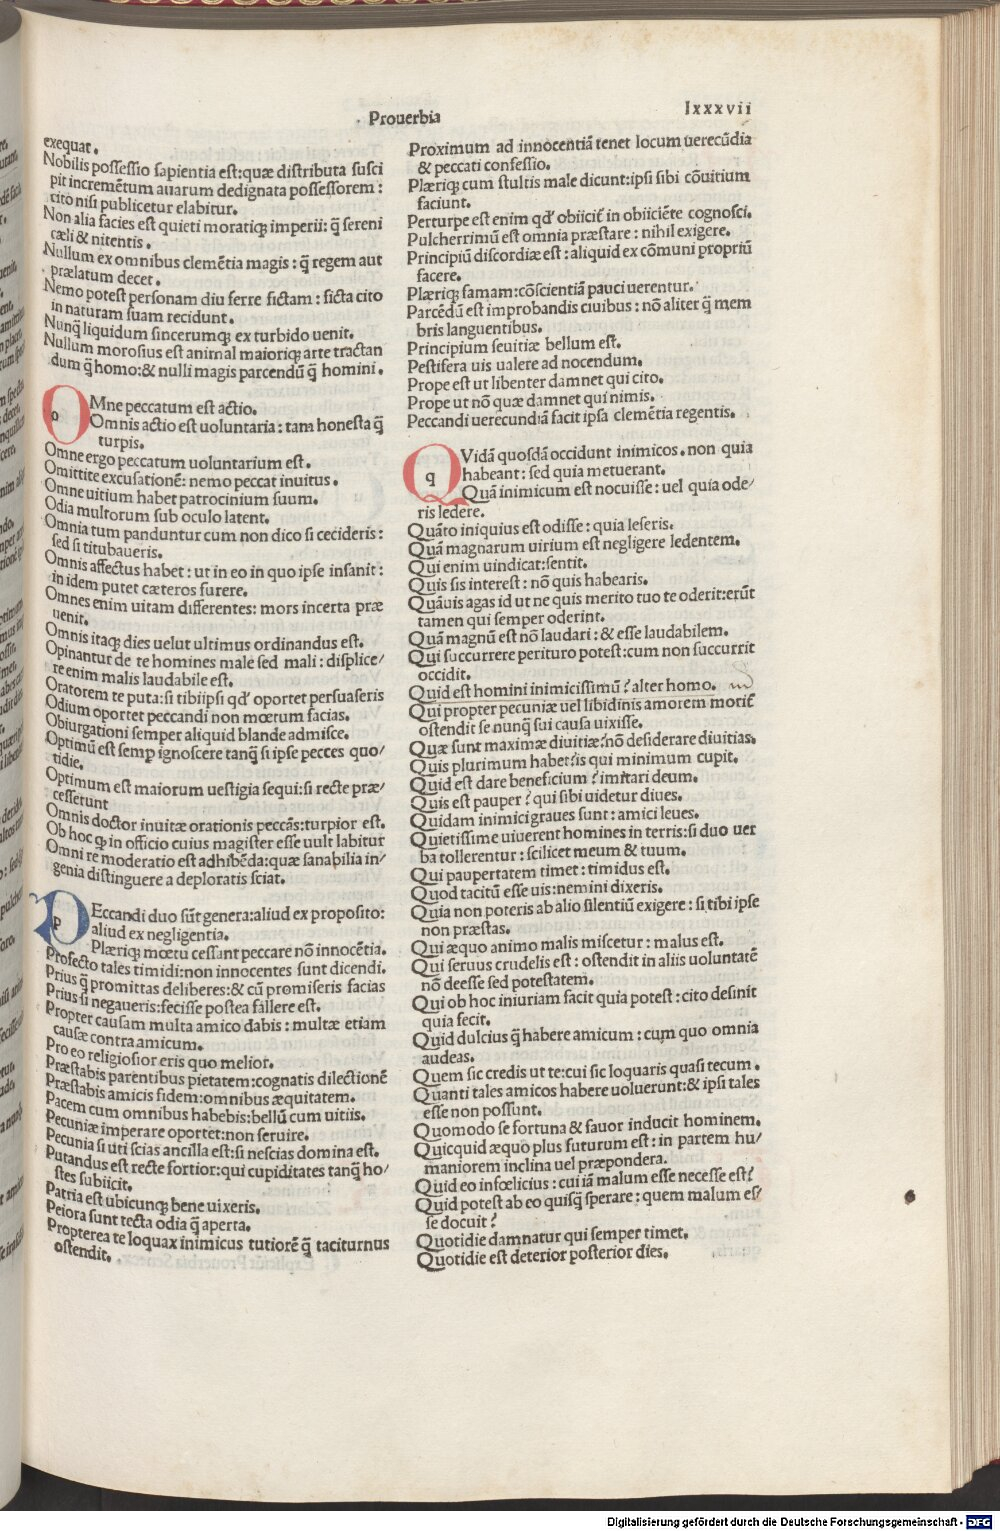 Prouerbia
lxxxvii
exequat.
Nobilis possessio sapientia est:quæ distributa susci
pit incremẽtum auarum dedignata possessorem:
cito nisi publicetur elabitur.
Non alia facies est quieti moratiqꝫ imperii: q̃ sereni
cæli & nitentis.
Nullum ex omnibus clemẽtia magis: q̃ regem aut
prælatum decet.
Nemo potest personam diu ferre fictam: ficta cito
in naturam suam recidunt.
Nunq̃ liquidum sincerumqꝫ ex turbido uenit.
Nullum morosius est animal maioriqꝫ arte tractan
dum q̃ homo:& nulli magis parcendũ q̃ homini.
o
OMne peccatum est actio.
Omnis actio est uoluntaria: tam honesta q̃
turpis.
Omne ergo peccatum uoluntarium est.
Omittite excusationẽ: nemo peccat inuitus.
Omne uitium habet patrocinium suum.
Odia multorum sub oculo latent.
Omnia tum panduntur cum non dico si cecideris:
sed si titubaueris.
Omnis affectus habet: ut in eo in quo ipse insanit:
in idem putet cæteros furere.
Omnes enim uitam differentes: mors incerta præ
uenit.
Omnis itaqꝫ dies uelut ultimus ordinandus est.
Opinantur de te homines male sed mali: displice/
re enim malis laudabile est.
Oratorem te puta:si tibiipsi qd' oportet persuaseris
Odium oportet peccandi non mœtum facias.
Obiurgationi semper aliquid blande admisce.
Optimũ est semp ignoscere tanq̃ si ipse pecces quo/
tidie.
Optimum est maiorum uestigia sequi:si recte præ/
cesserunt
Omnis doctor inuitæ orationis peccãs:turpior est.
Ob hoc qꝫ in officio cuius magister esse uult labitur
Omni re moderatio est adhibẽda:quæ sanabilia in/
genia distinguere a deploratis sciat.
p
PEccandi duo sũt genera:aliud ex proposito:
aliud ex negligentia.
Plæriqꝫ mœtu cessant peccare nõ innocẽtia.
Profecto tales timidi:non innocentes sunt dicendi.
Prius q̃ promittas deliberes:& cũ promiseris facias
Prius si negaueris:fecisse postea fallere est.
Propter causam multa amico dabis: multæ etiam
causæ contra amicum.
Pro eo religiosior eris quo melior.
Præstabis parentibus pietatem:cognatis dilectionẽ
Præstabis amicis fidem:omnibus æquitatem.
Pacem cum omnibus habebis:bellũ cum uitiis.
Pecuniæ imperare oportet:non seruire.
Pecunia si uti scias ancilla est:si nescias domina est.
Putandus est recte fortior:qui cupiditates tanq̃ ho/
stes subiicit.
Patria est ubicunqꝫ bene uixeris.
Peiora sunt tecta odia q̃ aperta.
Propterea te loquax inimicus tutiorẽ q̃ taciturnus
ostendit.
Proximum ad innocentiã tenet locum uerecũdia
& peccati confessio.
Plæriqꝫ cum stultis male dicunt:ipsi sibi cõuitium
faciunt.
Perturpe est enim qd' obiicit̃ in obiiciẽte cognosci.
Pulcherrimũ est omnia præstare: nihil exigere.
Principiũ discordiæ est: aliquid ex cõmuni propriũ
facere.
Plæriqꝫ famam:cõscientiã pauci uerentur.
Parcẽdũ est improbandis ciuibus: nõ aliter q̃ mem
bris languentibus.
Principium seuitiæ bellum est.
Pestifera uis ualere ad nocendum.
Prope est ut libenter damnet qui cito.
Prope ut nõ quæ damnet qui nimis.
Peccandi uerecundiã facit ipsa clemẽtia regentis.
q
QVidã quosdã occidunt inimicos. non quia
habeant: sed quia metuerant.
Quã inimicum est nocuisse: uel quia ode/
ris ledere.
Quãto iniquius est odisse: quia leseris.
Quã magnarum uirium est negligere ledentem.
Qui enim uindicat:sentit.
Quis sis interest: nõ quis habearis.
Quãuis agas id ut ne quis merito tuo te oderit:erũt
tamen qui semper oderint.
Quã magnũ est nõ laudari: & esse laudabilem.
Qui succurrere perituro potest:cum non succurrit
occidit.
Quid est homini inimicissimũ? alter homo.
Qui propter pecuniæ uel libidinis amorem morit̃
ostendit se nunq̃ sui causa uixisse.
Quæ sunt maximæ diuitiæ?nõ desiderare diuitias.
Quis plurimum habet?is qui minimum cupit.
Quid est dare beneficium? imitari deum.
Quis est pauper? qui sibi uidetur diues.
Quidam inimici graues sunt: amici leues.
Quietissime uiuerent homines in terris:si duo uer
ba tollerentur: scilicet meum & tuum.
Qui paupertatem timet: timidus est.
Quod tacitũ esse uis:nemini dixeris.
Quia non poteris ab alio silentiũ exigere: si tibi ipse
non præstas.
Qui æquo animo malis miscetur: malus est.
Qui seruus crudelis est: ostendit in aliis uoluntatẽ
nõ deesse sed potestatem.
Qui ob hoc iniuriam facit quia potest: cito desinit
quia fecit.
Quid dulcius q̃ habere amicum: cum quo omnia
audeas.
Quem sic credis ut te:cui sic loquaris quasi tecum.
Quanti tales amicos habere uoluerunt:& ipsi tales
esse non possunt.
Quomodo se fortuna & fauor inducit hominem.
Quicquid æquo plus futurum est: in partem hu/
maniorem inclina uel præpondera.
Quid eo infœlicius: cui iã malum esse necesse est?
Quid potest ab eo quisq̃ sperare: quem malum es/
se docuit?
Quotidie damnatur qui semper timet.
Quotidie est deterior posterior dies.
Digitalisierung gefördert durch die Deutsche Forschungsgemeinschaft - DFG